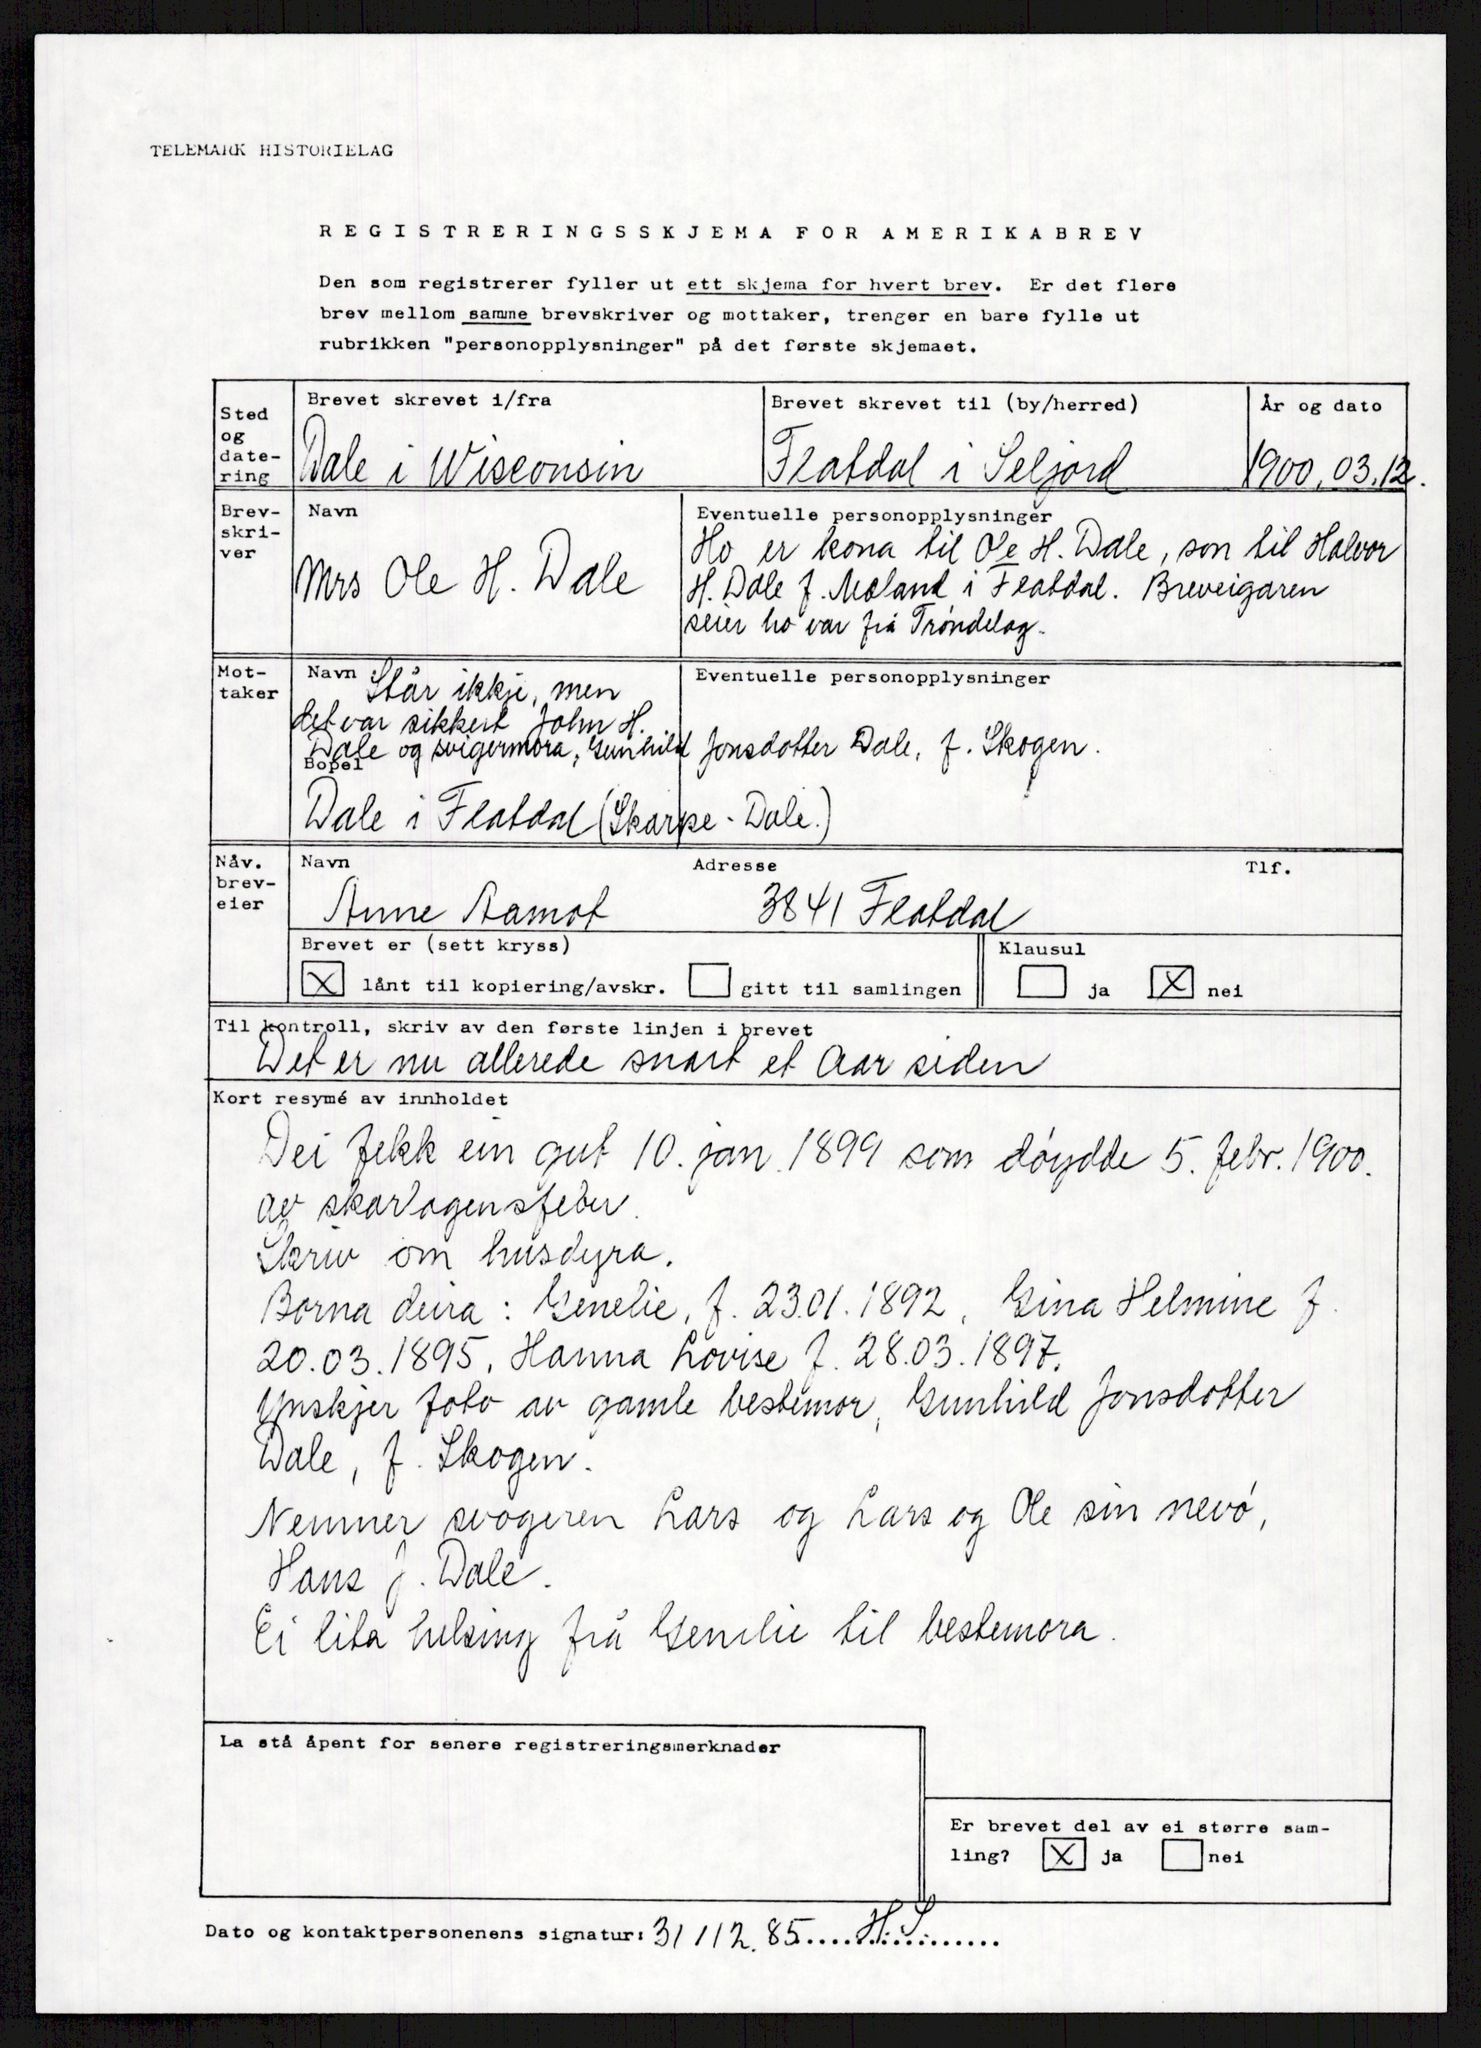 TELEMARK HISTORIELAG
REGISTRERINGSSKJEMA FOR AMERIKABREV
Den som registrerer fyller ut ett skjema for hvert brev. Er det flere
brev mellom samme brevskriver og mottaker, trenger en bare fylle ut
rubrikken "personopplysninger" på det første skjemaet.
Sted og date- ring
Brevet skrevet i/fra
Dale i Wisconsin
Brevet skrevet til (by/herred)
Flatdal i Seljord
År og dato
1900.03.12.
Brev- skri- ver
Navn
Mrs Ole H. Dale
Eventuelle personopplysninger
Ho er kona til Ole H. Dale, son til Halvor
H. Dale f. Moland i Flatdal. Breveigaren
seier ho var frå Trøndelag.
Mot- taker
Navn
Står ikkje, men
det var sikkert John H.
Eventuelle personopplysninger
Dale og svigermora, Gunhild Jonsdotter Dale, f. Skogen.
Bopel
Dale i Flatdal (Skarpe-Dale.)
Nåv. brev- eier
Navn
Anne Aamot
Adresse
3841 Flatdal
Tlf.
Brevet er (sett kryss)
X lånt til kopiering/avskr. gitt til samlingen
Klausul
ja X nei
Til kontroll, skriv av den første linjen i brevet
Det er nu allerede snart et Aar siden
Kort resymé av innholdet
Dei fekk ein gut 10. jan. 1899 som døydde 5. febr. 1900.
av skarlagensfeber.
Skriv om husdyra.
Borna deira: Genelie, f. 23.01.1892, Gina Helmine f.
20.03.1895, Hanna Lovise f. 28.03.1897.
Ynskjer foto av gamle bestemor, Gunhild Jonsdotter
Dale, f. Skogen.
Nemner svogeren Lars og Lars og Ole sin nevø,
Hans J. Dale.
Ei lita helsing frå Genelie til bestemora.
La stå åpent for senere registreringsmerknader
Er brevet del av ei større sam-
ling? X ja nei
Dato og kontaktpersonenens signatur: 31/12.85.....H.S.......